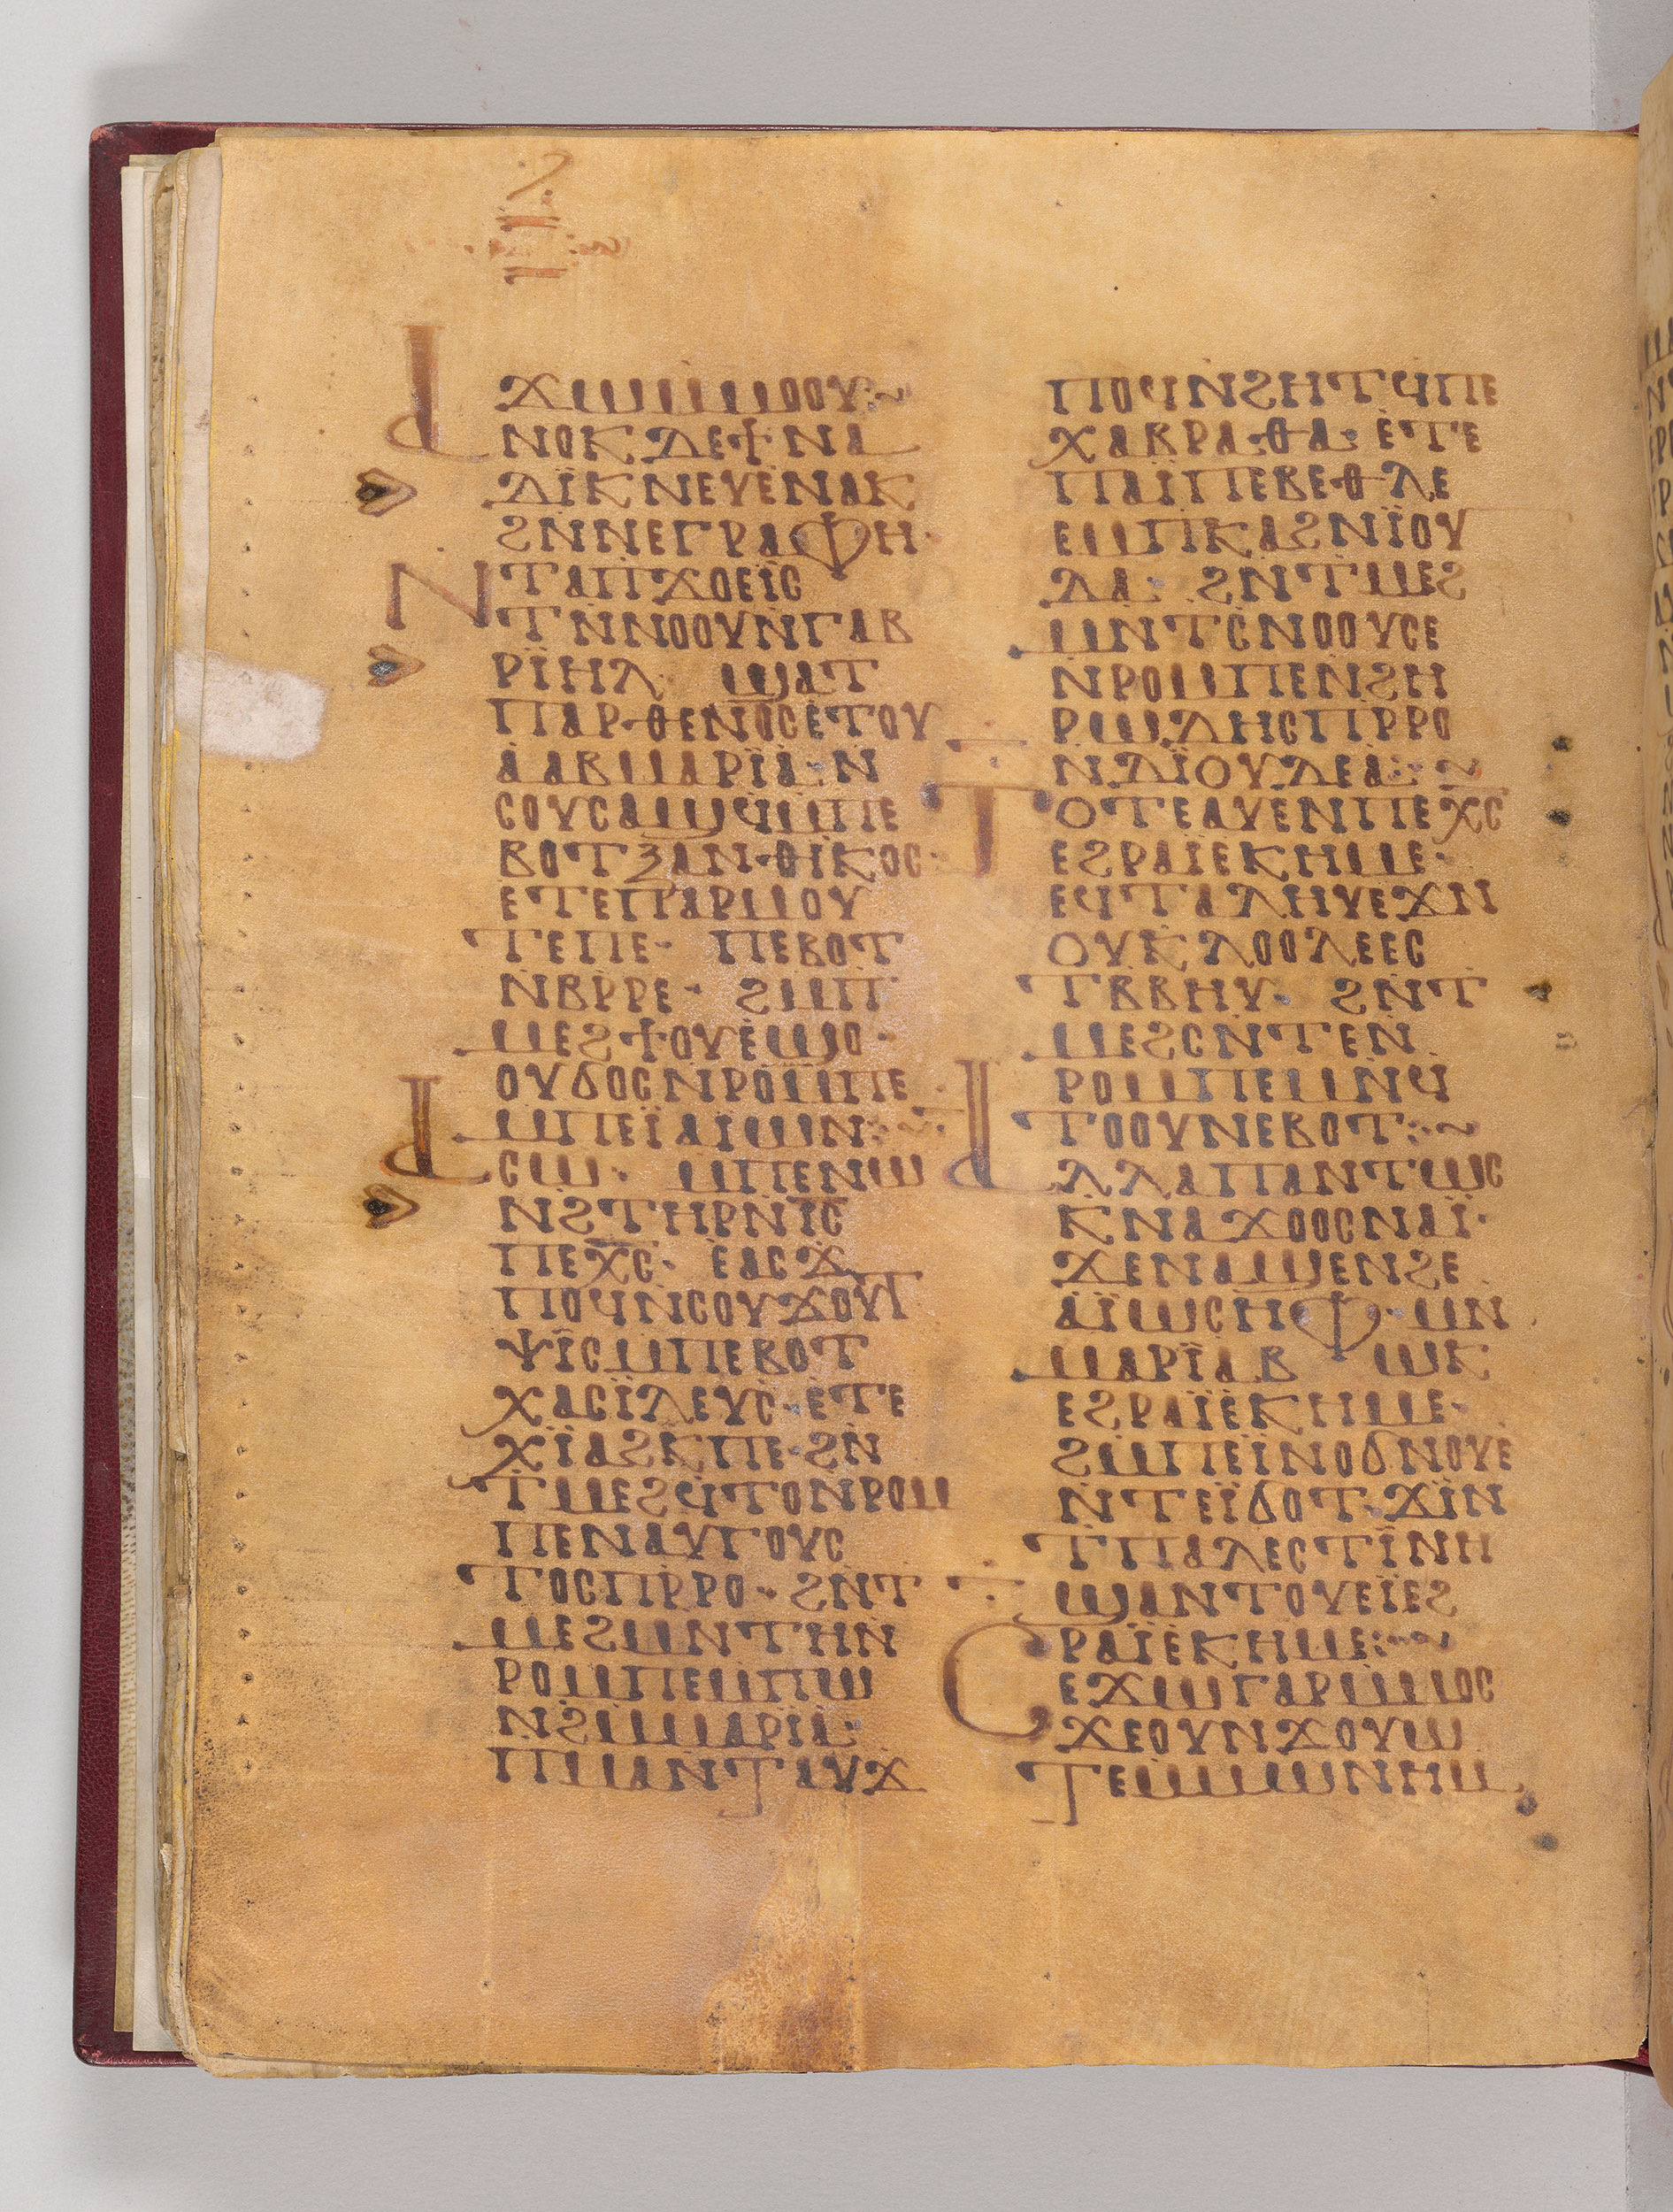 ϫⲱⲙⲙⲟⲟⲩ:~
Ⲁⲛⲟⲕⲇⲉϯⲛⲁ
ⲇⲓ̈ⲕⲛⲉⲩⲉⲛⲁⲕ
ϩⲛⲛⲉⲅⲣⲁⲫⲏ·
Ⲛⲧⲁⲡϫⲟⲉⲓ̈ⲥ
ⲧⲛⲛⲟⲟⲩⲛⲅⲁⲃ
ⲣⲓ̈ⲏⲗ· ϣⲁⲧ
ⲡⲁⲣⲑⲉⲛⲟⲥⲉⲧⲟⲩ
ⲁⲁⲃⲙⲁⲣⲓ̈ⲁ·ⲛ
ⲥⲟⲩⲥⲁϣϥⲙⲡⲉ
ⲃⲟⲧⲝⲁⲛⲑⲓⲕⲟⲥ·
ⲉⲧⲉⲡⲁⲣⲙⲟⲩ
ⲧⲉⲡⲉ· ⲡⲉⲃⲟⲧ
ⲛⲃⲣⲣⲉ· ϩⲙⲡ
ⲙⲉϩϯⲟⲩⲉϣⲟ·
ⲟⲩϭⲟⲥⲛⲣⲟⲙⲡⲉ
ⲙⲡⲉⲓ̈ⲁⲓⲱⲛ:~
Ⲁⲥⲱ· ⲙⲡⲉⲛⲱ
ⲛϩⲧⲏⲣⲛⲓ̅ⲥ̅
ⲡⲉⲭ̅ⲥ̅· ⲉⲁⲥϫ
ⲡⲟϥⲛⲥⲟⲩϫⲟⲩⲧ
ⲯⲓ̈ⲥⲙⲡⲉⲃⲟⲧ
ⲭⲁⲥⲓ̈ⲗⲉⲩⲥ·ⲉⲧⲉ
ⲭⲓ̈ⲁϩⲕⲡⲉ·ϩⲛ
ⲧⲙⲉϩϥⲧⲟⲛⲣⲟⲙ
ⲡⲉⲛⲁⲩⲅⲟⲩⲥ
ⲧⲟⲥⲡⲣⲣⲟ· ϩⲛⲧ
ⲙⲉϩⲙⲛⲧⲏⲛ
ⲣⲟⲙⲡⲉⲙⲡⲱ
ⲛϩⲙⲙⲁⲣⲓⲁ·
ⲡⲙⲁⲛⲧⲁⲩϫ
ⲡⲟϥⲛϩⲏⲧϥⲡⲉ
ⲭⲁⲃⲣⲁⲑⲁ· ⲉⲧⲉ
ⲡⲁⲓ̈ⲡⲉⲃⲉⲑⲗⲉ
ⲉⲙⲡⲕⲁϩⲛⲓ̈ⲟⲩ
ⲇⲁ· ϩⲛⲧⲙⲉϩ
ⲙⲛⲧⲥⲛⲟⲟⲩⲥⲉ
ⲛⲣⲟⲙⲡⲉⲛϩⲏ
ⲣⲱⲇⲏⲥⲡⲣⲣⲟ
ⲛϯⲟⲩⲇⲉⲁ:~
Ⲧⲟⲧⲉⲁⲩⲉⲛⲡⲉⲭ̅ⲥ̅
ⲉϩⲣⲁⲓ̈ⲉⲕⲏⲙⲉ·
ⲉϥⲧⲁⲗⲏⲩⲉϫⲛ
ⲟⲩⲕⲗⲟⲟⲗⲉⲉⲥ
ⲧⲃⲃⲏⲩ· ϩⲛⲧ
ⲙⲉϩⲥⲛⲧⲉⲛ
ⲣⲟⲙⲡⲉⲙⲛϥ
ⲧⲟⲟⲩⲛⲉⲃⲟⲧ:~
Ⲁⲗⲗⲁⲡⲁⲛⲧⲱⲥ
ⲕⲛⲁϫⲟⲟⲥⲛⲁⲓ̈·
ϫⲉⲛⲁϣⲉⲛϩⲉ
ⲁⲓ̈ⲱⲥⲏⲫ·ⲙⲛ
ⲙⲁⲣⲓ̈ⲁⲃⲱⲕ
ⲉϩⲣⲁⲓ̈ⲉⲕⲏⲙⲉ·
ϩⲙⲡⲉⲓ̈ⲛⲟϭⲛⲟⲩⲉ
ⲛⲧⲉⲓ̈ϭⲟⲧ·ϫⲓⲛ
ⲧⲡⲁⲗⲉⲥⲧⲓ̈ⲛⲏ
ϣⲁⲛⲧⲟⲩⲉⲓ̈ⲉϩ
ⲣⲁⲓ̈ⲉⲕⲏⲙⲉ:~
Ⲥⲉϫⲱⲅⲁⲣⲙⲙⲟⲥ
ϫⲉⲟⲩⲛϫⲟⲩⲱ
ⲧⲉⲙⲙⲱⲛⲏⲙ